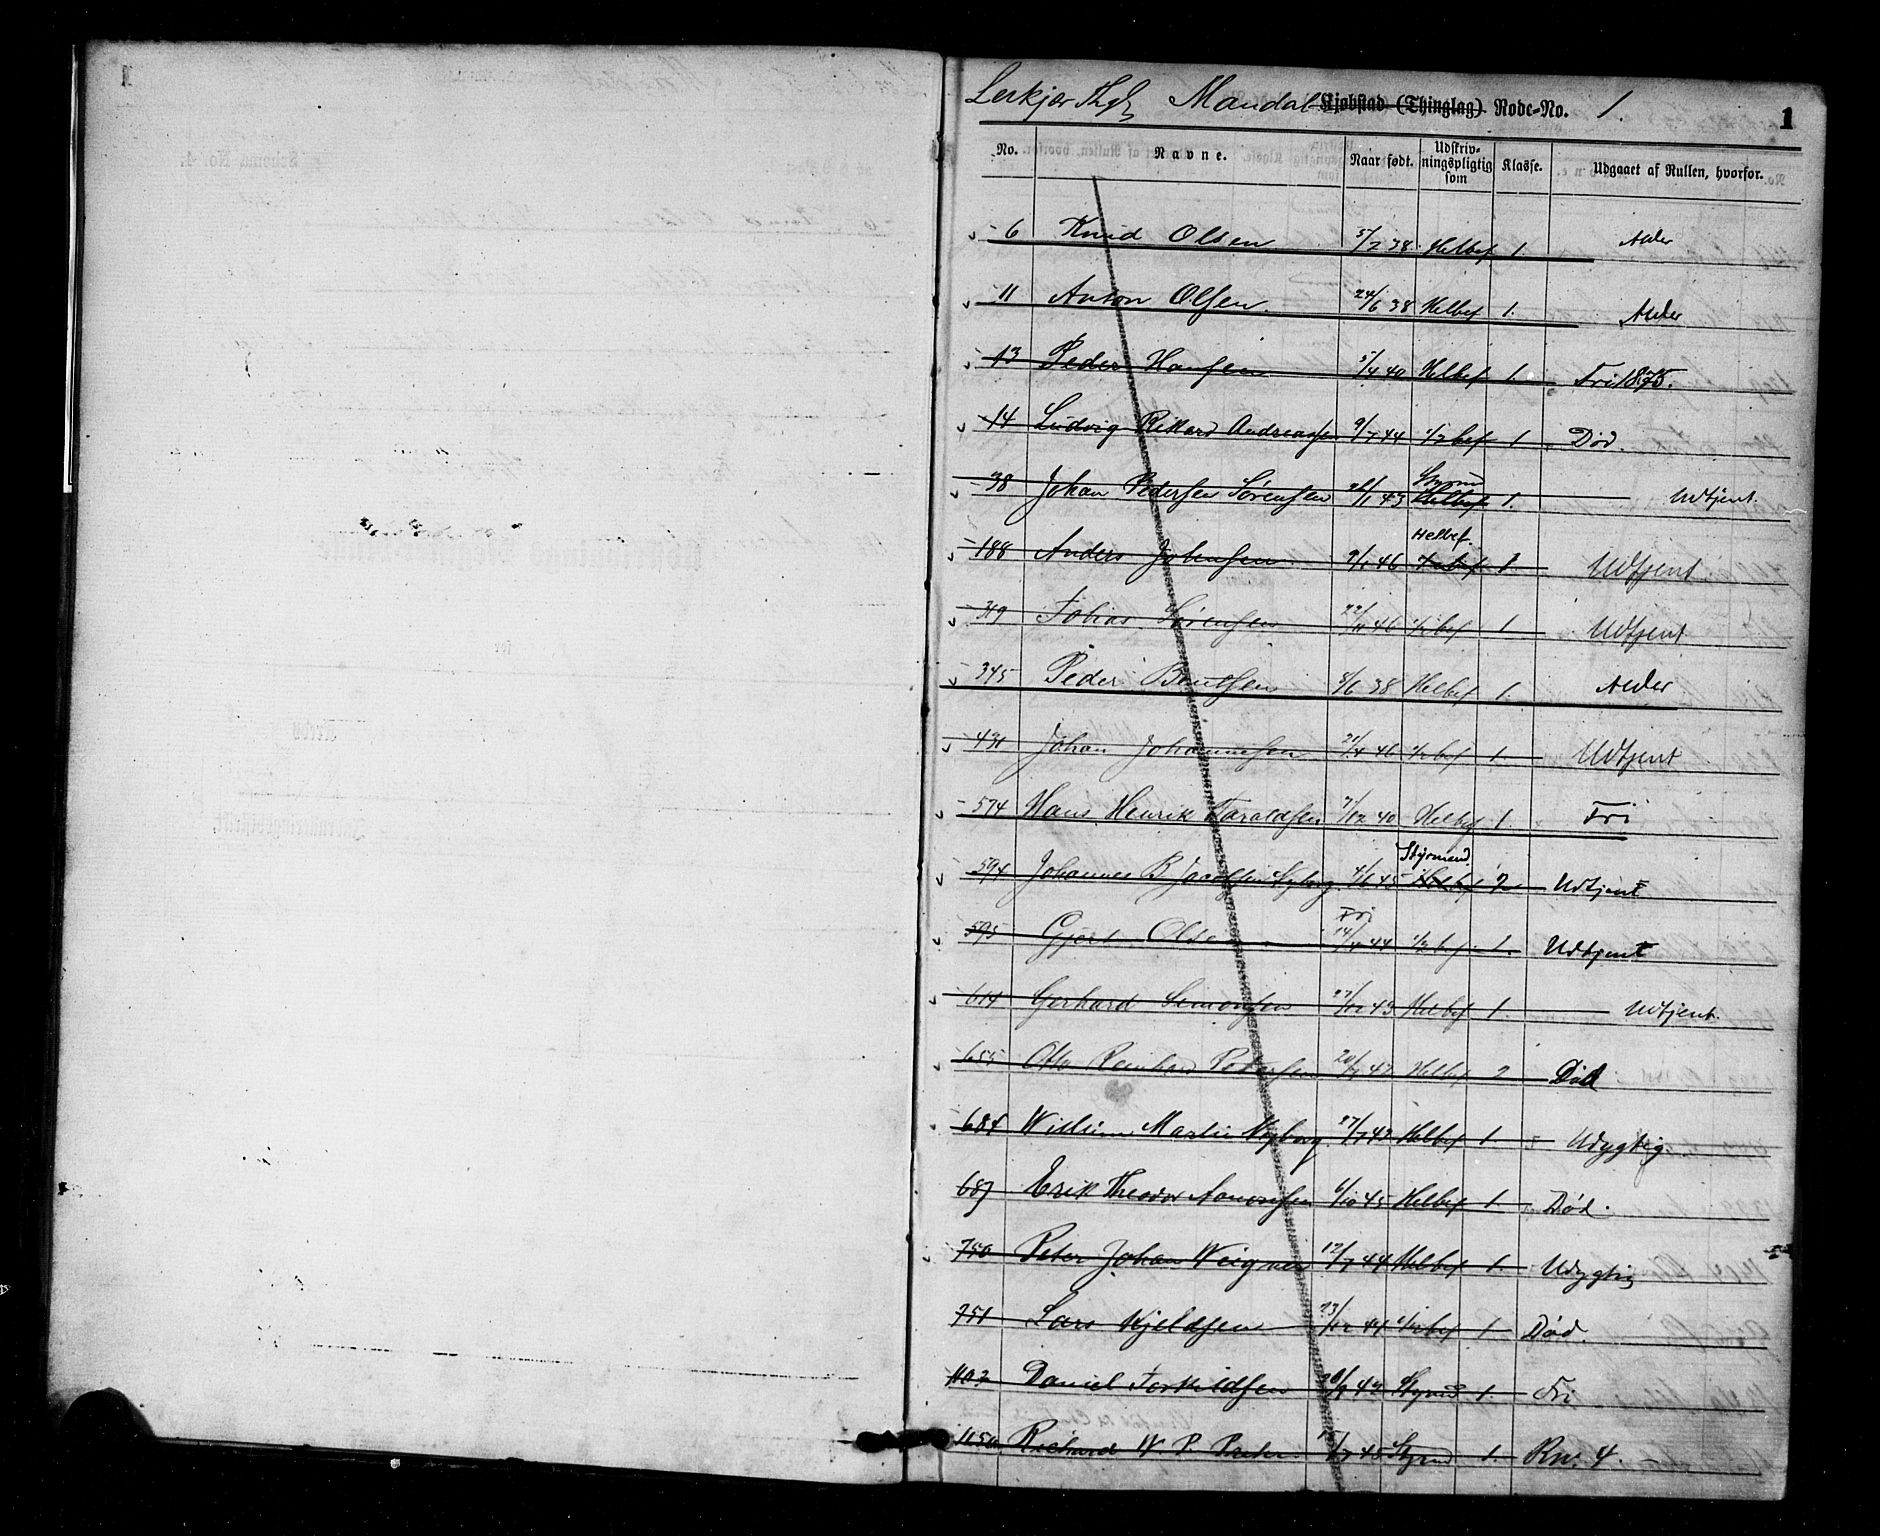 Mandal Kjøbstad (Thinglag) Rode-No. 1. 1
No. Navne. Naar født. Udskriv-ningspligtig som Klasse. Udgaaet af Rullen, hvorfor.
6 Knud Olsen 5/2 38 Helbef 1. Alder
11 Anton Olsen. 24/6 38 Helbef 1. Alder
13 Peder Hansen 5/4 40 Helbef 1. Fri 1875.
14 Ludvig Rikard Andreassen 9/7 44 1/2 bef 1 Død.
38 Johan Pedersen Sørensen /1 43 Styrm Helbef 1. Udtjent.
188 Anders Johnsen 9/1 46 Helbef. 1 Udtjent
319 Tobias Sørensen 22/11 46 1/2 bef 1 Udtjent
345 Peder Bentsen 8/6 38 Helbef 1. Alder
431 Johan Johannesen 21/4 46 1/2 bef 1. Udtjent
574 Hans Henrik Taraldsen 7/12 40 Helbef 1. Fri
594 Johannes B Jacobsen 4/6 45 Styrmand. Helbef 2 Udtjent
595 Gjert Olsen Fri 14/4 44 1/2 bef 1. Udtjent
614 Gerhard Simonsen 27/12 43 Helbef 1. Udtjent.
655 Otto Reinhard Petersen 20/9 43 Helbef 2 Død
684 William Martin Nyborg 27/7 43 Helbef 1. Udygtig.
687 Erik Theodor Aanonsen 6/10 45 Helbef 1. Død.
750 Peter Johan Weigner 12/7 44 Helbef 1. Udygtig
751 Lars Kjeldsen 23/12 44 1/2 bef 1 Død.
1103 Daniel Torkildsen /9 43 Styrmd 1. Fri
1150 Richard W. P. /7 45 Styrmd 1. Rno. 4.